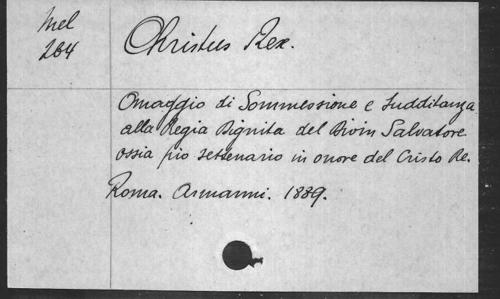 Mel
264
Christus Rex.
Omaggio di Sommessione e Sudditanza
alla Regia Dignita del Divin Salvatore
ossia pio settenario in onore del Cristo Re.
Roma. Armanni. 1889.